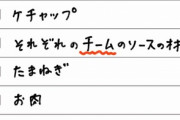 ケチャップ
それぞれのチームのソースの材
たまねぎ
お肉